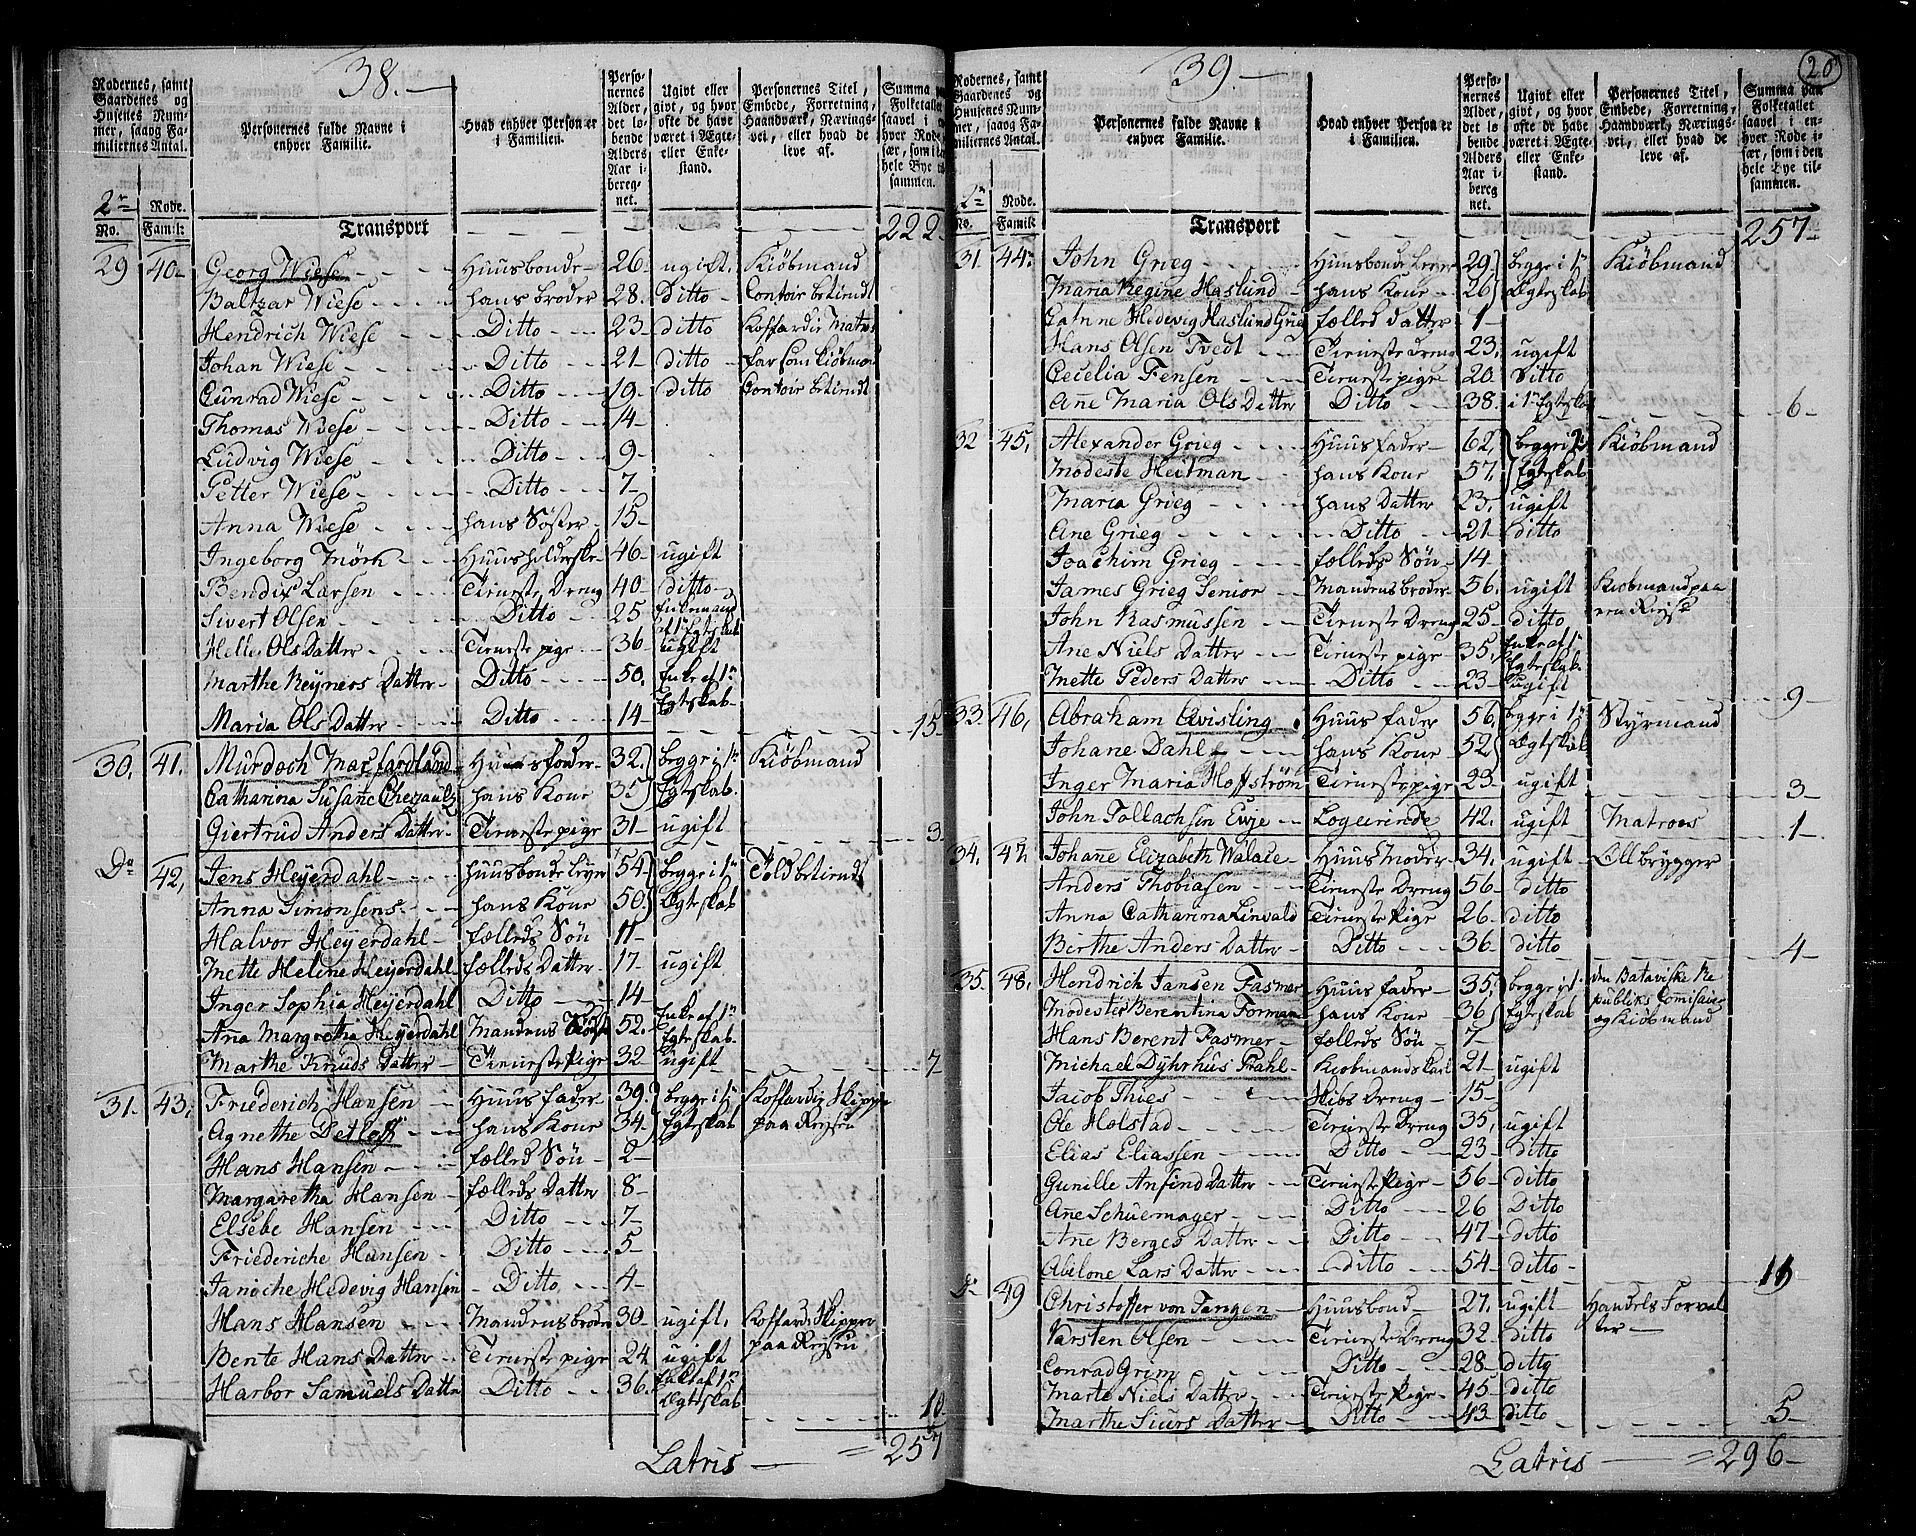 38.
Rodernes, samt Gaardenes og Husenes Nummer, saavog Familiernes Antal.
Personernes fulde Navne i enhver Familie.
Hvad enhver Person er i Familien.
Personernes Alder, det løbende Alders Aar iberegnet.
Ugivt eller givt, og hvor ofte de have været i Ægte- eller Enkestand.
Personernes Titel, Embede, Forretning, Haandværk, Næringsvei, eller hvad de leve af.
Summa Folketallet
2n Rode.
No. Famili:
Transport 222
29 40 Georg Wiese Huusbonde 26 ugift. Kiøbmand
Baltzar Wiese hans broder 28. Ditto Contoir betiendt
Hendrich Wiese Ditto 23 ditto Koffardie Matros
Johan Wiese Ditto 21 ditto
Cunrad Wiese Ditto 19 ditto Contoir betiendt
Thomas Wiese Ditto 14
Ludvig Wiese Ditto 9
Petter Wiese Ditto 7
Anna Wiese hans Søster 15
Ingeborg Mörk Huusholderske 46 ugift
Bendix Larsen Tieneste Dreng 40 ditto
Sivert Olsen Ditto 25 Enkemand af 1 Egteskab
Helle Ols Datter Tieneste pige 36 ugift
Marthe Reyners Datter Ditto 50 Enke af 1n Egteskab
Maria Ols Datter Ditto 14 15
30. 41. Murdoch Huusfader 32. begge i 1n Kiøbmand
Catharina Susane hans Kone 35 Egteskab.
Giertrud Anders Datter Tieneste pige 31 ugift 3
Do 42, Jens Heyerdahl huusbonde 54 begge i 1n Toldbetiendt
Anna Simonsens hans Kone 50. Ægteskab
Halvor Heyerdahl fælleds Sön 11
Mette Heline Heyerdahl fælleds Datter 17 ugift
Inger Sophia Heyerdahl Ditto 14
Ana Margretha Heyerdahl Mandens 52. Enke af 1n Egteskab
Marthe Knuds Datter Tieneste Pige 32 ugift 7
31. 43, Friederich Hansen Huusfader 39 begge i 1 Koffardie Skipper
Agnethe Detleff hans Kone 34 Egteskab paa Reysen
Hans Hansen fælled Sön 2
Margaretha Hansen fælleds Datter 8
Elsebe Hansen Ditto 7
Friederiche Hansen Ditto 5
Janoche Hedevig Hansen Ditto 4
Hans Hansen Mandens broder 30 ugift. Koffardie Skipper
Bente Hans Datter Tieneste pige 24 ugift paa Reysen
Harbor Samuels Datter Ditto 36. Enke af 1n Ægteskab 10
Latris = 257
39
20
Rodernes, samt Gaardenes og Husenes Nummer, saavog Familiernes Antal.
Personernes fulde Navne i enhver Familie.
Hvad enhver Person er i Familien.
Personernes Alder, det løbende Alders Aar iberegnet.
Ugivt eller givt, og hvor ofte de have været i Ægte- eller Enkestand.
Personernes Titel, Embede, Forretning, Haandværk, Næringsvei, eller hvad de leve af.
Summa paa Folketallet saavel i enhver Rode især, som i den hele Bye tilsammen.
2n Rode
No. Famili:
Transport 257
31 44 John Grieg Huusbonde 29 begge i 1n Kiøbmand
Maria Regine Haslund hans Kone 26 Ægteskab
Catrine Hedevig Haslund Grieg fælled datter 1
Hans Olsen Tvedt Tieneste Dreng 23 ugift
Cecelia Jensen Tieneste pige 20 Ditto
Ane Maria Ols Datter Ditto 38. i 1n Egteskab 6
32 45. Alexander Grieg Huusfader 62. begge i Kiøbmand
Modeste Heitman hans Kone 57. Egteskab
Maria Grieg hans Datter 23. ugift
Ane Grieg Ditto 21 ditto
Joachim Grieg fælleds Sön 14
James Grieg Senior Mandens broder 56. ugift Kiøbmand paa en Reyse
John Rasmussen Tieneste Dreng 25 ditto
Ane Niels Datter Tieneste pige 35. Enke af 1n Egteskab
Mette Peders Datter Ditto 23 ugift 9
33 46, Abraham Qvisling Huusfader 56 begge i 1n Styrmand
Johane Dahl hans Kone 52 Ægteskab
Inger Maria Hoffström Tieneste pige 23 ugift 3
John Tollachsen Ewje Logerende 42. ugift Matroes 1
34. 47 Johane Elizabeth Walace Huus Moder 34. ugift Öllbrygger
Anders Thobiasen Tieneste Dreng 56 ditto
Anna Catharina Linvald Tieneste Pige 26 ditto
Birthe Anders Datter Ditto 36 ditto 4
35. 48. Hendrich Jansen Fasmer Huusfader 35. begge i 1. den Bataviske Re
Modester Berentina Forman hans Kone 36 Egteskab publiks Comisair
Hans Berent Fasmer fælleds Sön 7 og Kiøbmand
Michael Dyhrhus Prahl Kiøbmandskarl 21 ugift
Jacob Thies Dreng 15
Ole Holstad Tieneste Dreng 35 ugift
Elias Eliassen Ditto 23 ditto
Gunille Anfind Datter Tieneste Pige 56 ditto
Ane Schuemager Ditto 26 Ditto
Ane Berges Datter Ditto 47 ditto
Abelone Lars Datter ditto 54 ditto 11
Do 49 Christoffer von Tangen Huusbond 27. ugift Handels Forvalter
Karsten Olsen Tieneste Dreng 32 ditto
Conrad Grim Ditto 28 ditto
Marte Niels Datter Tieneste Pige 45 ditto
Marthe Siurs Datter Ditto 43 ditto 5
Latris = 296